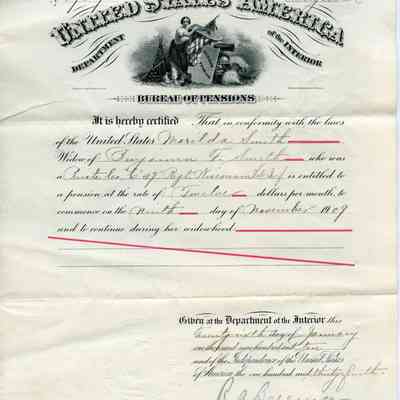 UNITED STATES AMERICA
DEPARTMENT of the INTERIOR
BUREAU OF PENSIONS
It is hereby certified That in conformity with the laws
of the United States Marilda Smith
Widow of Benjamin F. Smith who was
a Private Co E 49 Regt Wisconsin is entitled to
a pension at the rate of Twelve dollars per month, to
commence on the Ninth day of November 1909
and to continue during her widowhood
Given at the Department of the Interior this
day of January
one thousand nine hundred and ten
and of the Independence of the United States
of America the one hundred and thirty fourth.